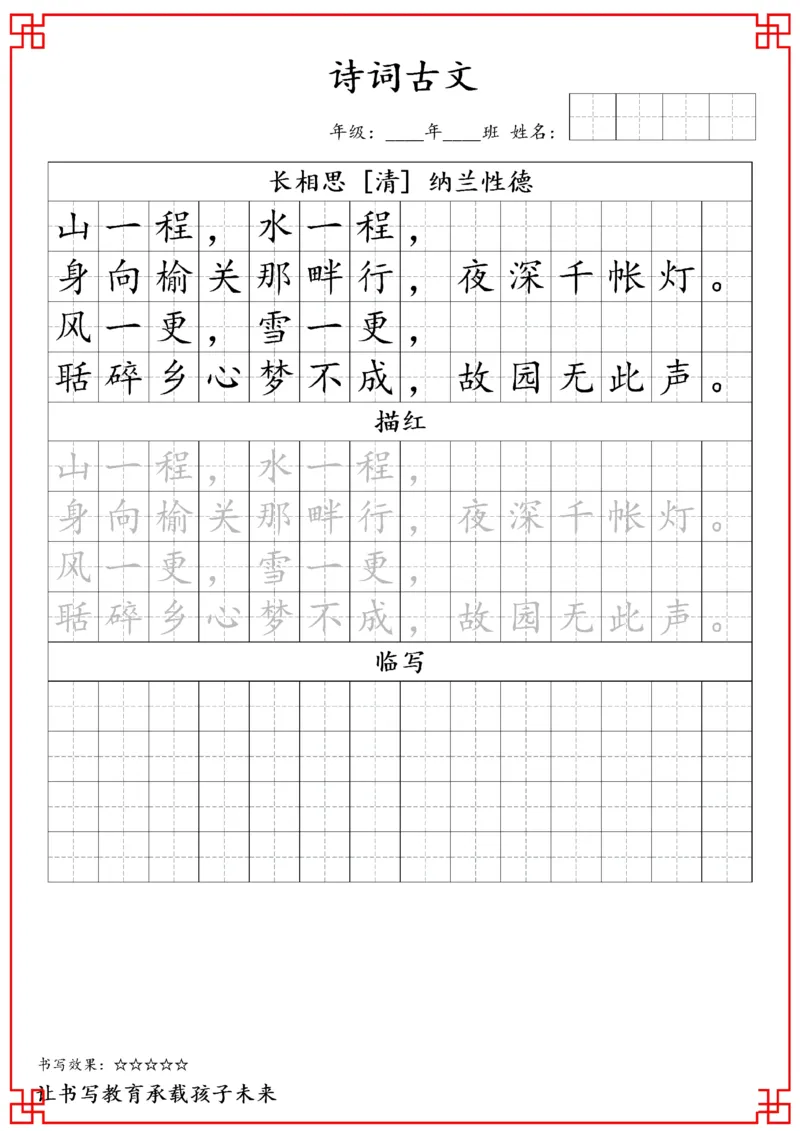 诗词古文
年级：____年____班 姓名：
长相思［清］纳兰性德
山一程，水一程，
身向榆关那畔行，夜深千帐灯。
风一更，雪一更，
聒碎乡心梦不成，故园无此声。
描红
山一程，水一程，
身向榆关那畔行，夜深千帐灯。
风一更，雪一更，
聒碎乡心梦不成，故园无此声。
临写
书写效果：☆☆☆☆☆
让书写教育承载孩子未来